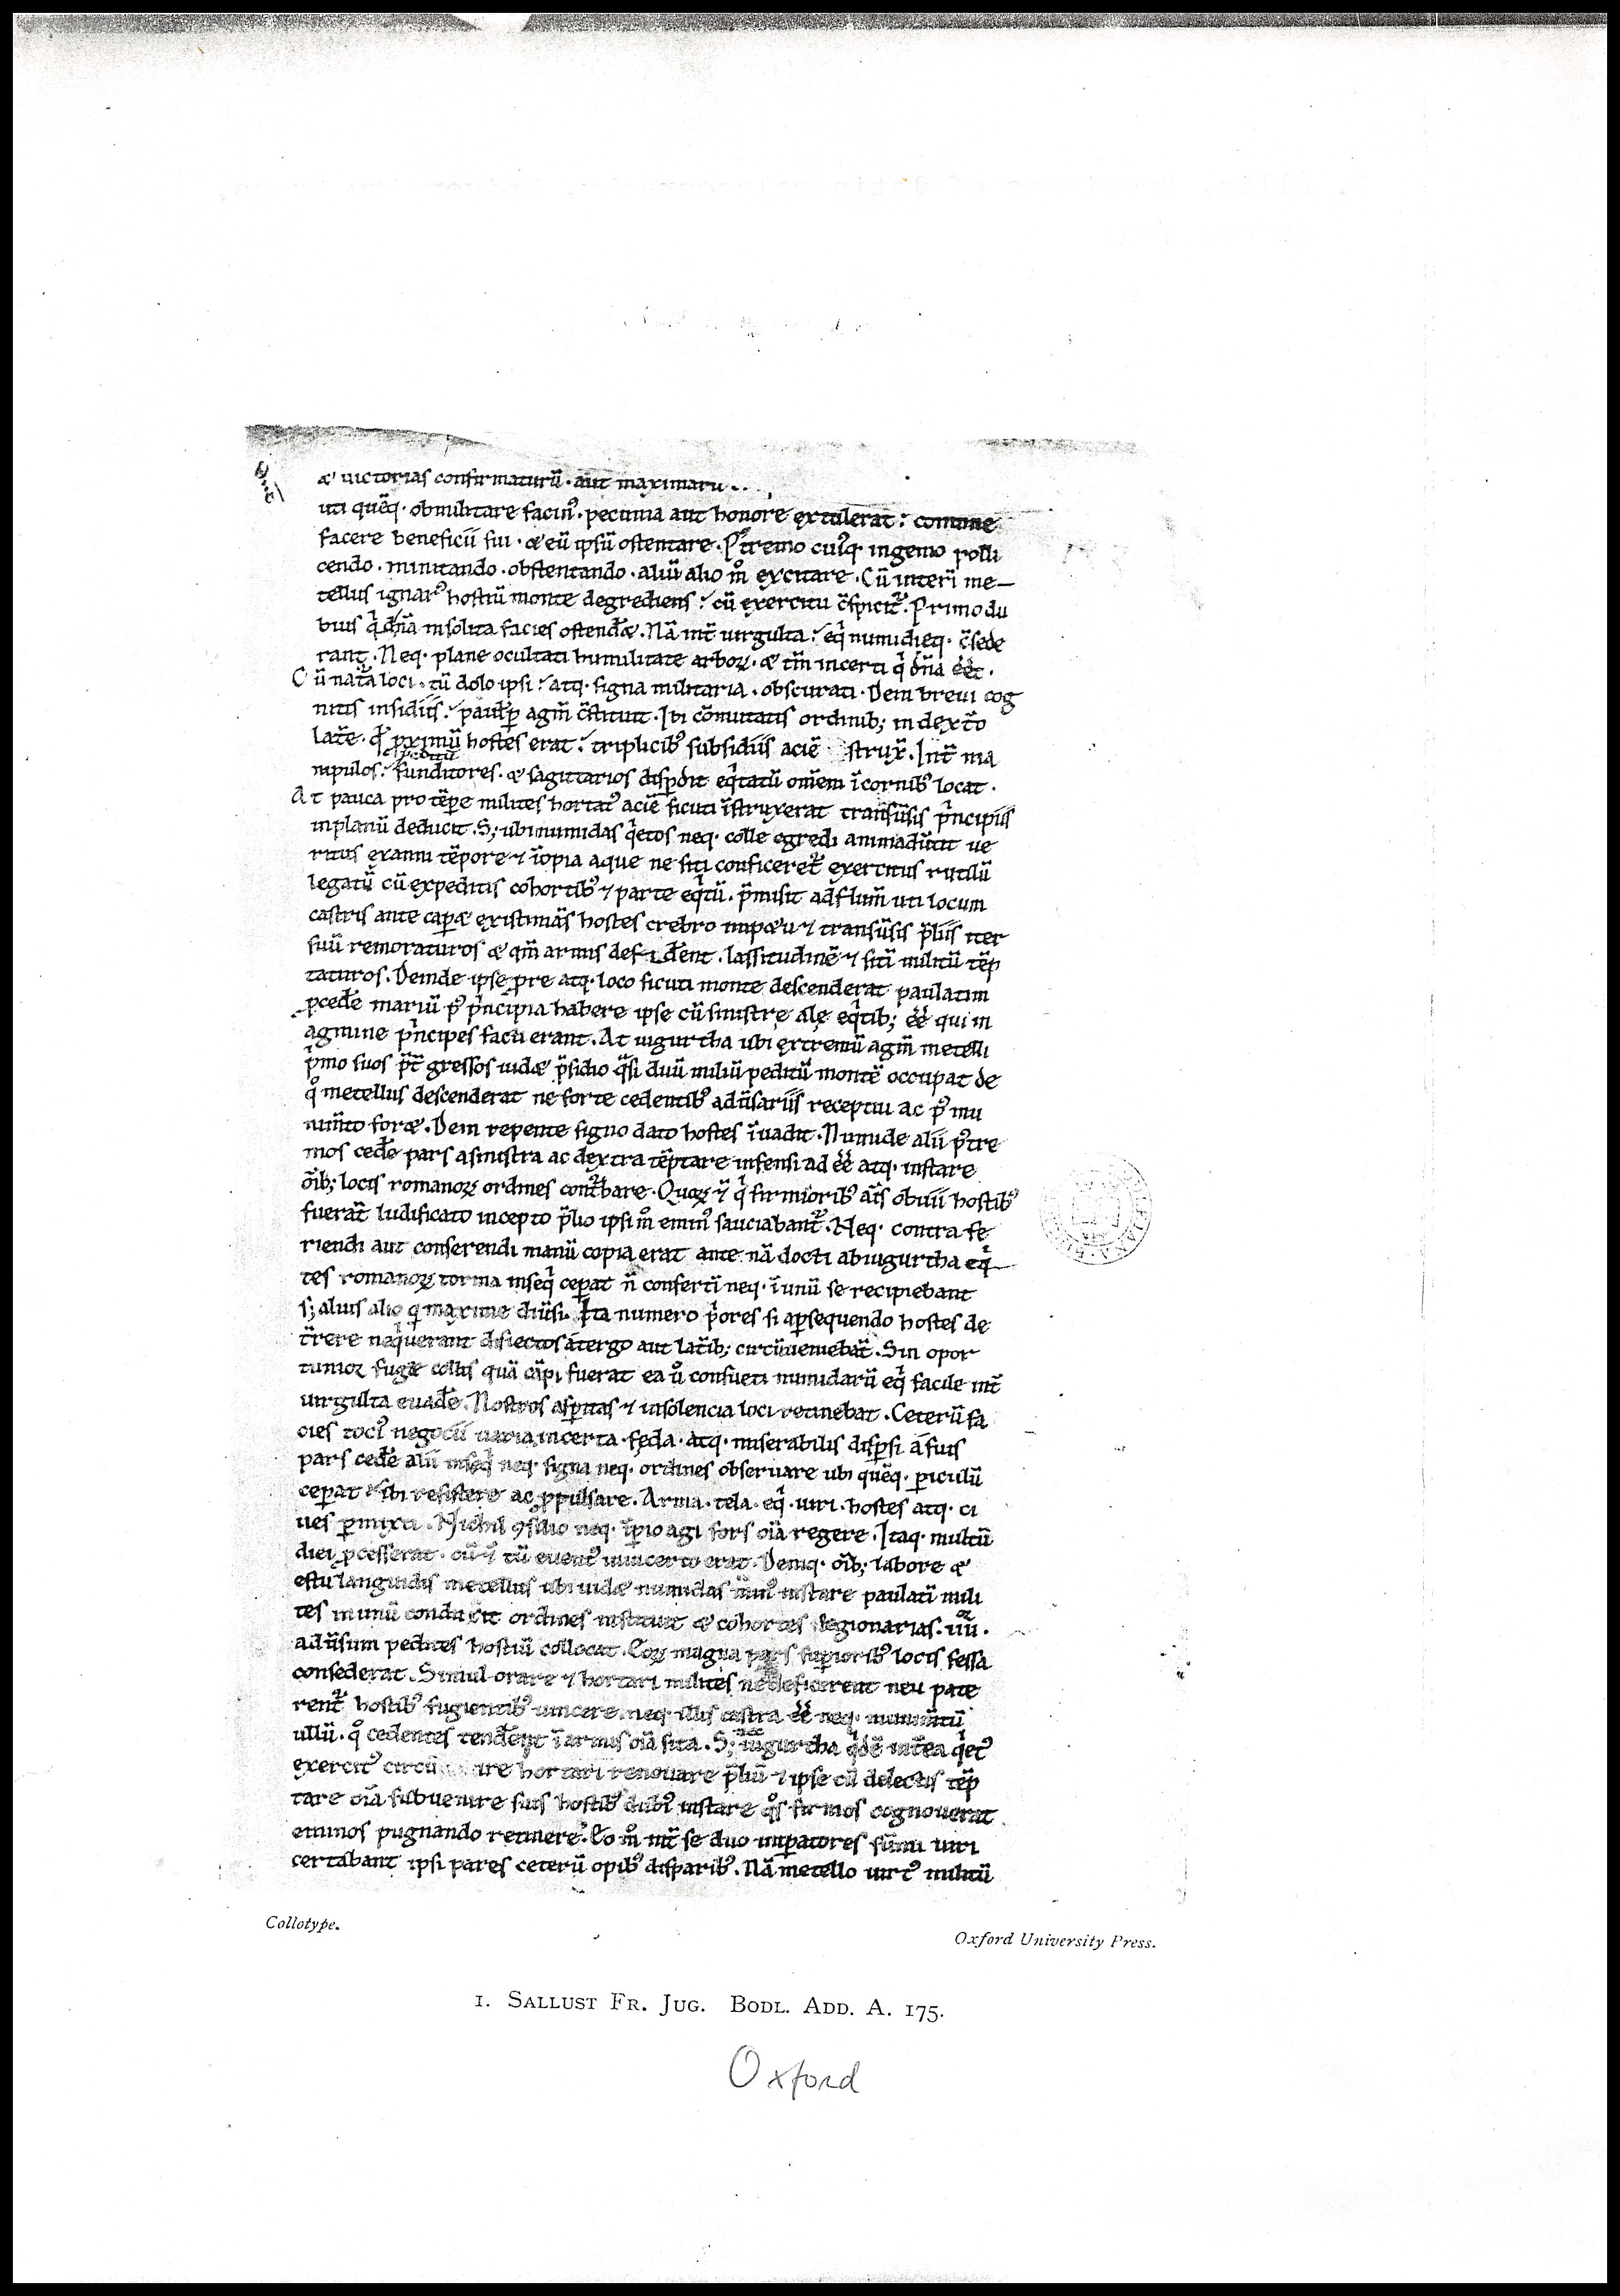 & uictorias confirmaturū · aut maximaru
uti quēq · ob militare facin᾽ · pecunia aut honore extulerat : comune
facere beneficii sui · & eū ipsū ostentare . P᾽tremo cui᾽q · ingenio polli
cendo · minitando · obstentando · aliū alio m̊ excitare . Cū interī me—
tellus ignar᾽ hostiū monte degrediens : cū exercitu c̄spicit᾽ . Primo du
bius q̇dnā insolita facies ostend̄& . Nā int̄ uirgulta : eq̇ numidieq · c̄sede
rant . Neq · plane ocultati humilitate arboꝝ · & tm̄ incerti q̇dnā eēt ·
Cū nat᾽a loci · tū dolo ipsi : atq · signa militaria · obscurati . Dein breui cog
nitis insidiis : paul̄p agm̄ c̄stituit . Ibi cōmutatis ordinib; in dext᾽o
lat̄e · q̄ pximū hostes erat : triplicib᾽ subsidiis aciē strux̄ . Int̄ ma
nipulos : funditores · & sagittarios disp̄dit eq̇tatū omēm ī cornib᾽ locat ·
At pauca pro tēpe milites hortat᾽ aciē sicuti īstruxerat transūsis ṗncipiis
in planū deducit . S; ubi numidas q̇etos neq · colle egredi animadūtit ue
ritus ex anni tēpore ⁊ īopia aque ne siti conficeret᾽ exercitus rutilū
legatū cū expeditis cohortib᾽ ⁊ parte eq̇tū . p̄misit ad flum̄ uti locum
castris ante cap& existimās hostes crebro imp&u ⁊ transūsis p̄liis iter
suū remoraturos & qm̄ armis def id̄ent . lassitudinē ⁊ sitī militū tēp
taturos . Deinde ipse pre atq · loco sicuti monte descenderat paulatim
pced̄e mariū p᾽ ṗncipia habere ipse cū sinistre ale eq̇tib; eē qui in
agmine ṗncipes facti erant . At iugurtha ubi extremū agm̄ metelli
ṗmo suos p̄t gressos uid& p̄sidio q̄si duū miliū peditū montē occupat de
q̊ metellus descenderat ne forte cedentib᾽ adūsariis receptui ac p᾽ mu
nim̄to for& . Dein repente signo dato hostes īuadit . Numide alii p᾽tre
mos ced̄e pars a sinistra ac dextra tēptare infensi ad eē atq · instare
ōib; locis romanoꝝ ordines cont᾽bare . Quoꝝ ⁊ q̇ firmiorib᾽ aīs obuii hostib᾽
fuerāt ludificato incepto p̄lio ipsi m̊ emin᾽ sauciabant᾽ . Neq · contra fe
riendi aut conserendi manū copia erat ante nā docti ab iugurtha eq̇
tes romanoꝝ torma inseq̇ ceperat n̄ confertī neq · ī unū se recipiebant
s; alius alio q maxime diūsi . Ita numero ṗores si a psequendo hostes de
t̄rere naq̇uerant disiectos a tergo aut lat̄ib; circūueniebāt . Sin opor
tunior fuge collis quā cāpi fuerat ea ů consueti numidarū eq̇ facile int̄
uirgulta euad̄e . Nostros asperitas ⁊ insolencia loci retinebat . Ceterū fa
cies toci᾽ negocii uaria incerta · feda · atq · miserabilis dispersi a suis
pars ced̄e alii inseq̇ neq · signa neq · ordines obseruare ubi quēq · periculū
ceperat ibi resistere ac ppulsare . Arma · tela · eq̇ · uiri · hostes atq · ci
ues permixti . Nichil 9silio neq · īperio agi fors oīā regere . Itaq · multū
diei pcesserat · cū ⁊ tū euent᾽ in incerto erat . Deniq · oīb; labore &
estu languidis metellus ubi uid& numidas min᾽ instare paulatī mili
tes in unū conducit ordines instituit & cohortes legionarias · iiii ·
adūsum pedites hostiū collocat . Eoꝝ magna pars superiorib᾽ locis fessa
consederat . Simul orare ⁊ hortari milites ne deficerent neu pate
rent᾽ hostib᾽ fugientib᾽ uincere . neq · illis castra eē neq · munim̄tū
ullū · q̊ cedentes tend̄ent ī armis oīā sita . S; iugurtha q̇dē int̄ea q̇et᾽
exercit᾽ circū ire hortari renouare p̄liū ⁊ ipse cū delectis tēp
tare oīā subuenire suis hostib᾽ dubi᾽ instare q̊s firmos cognouerat
eminos pugnando retinere . Eo m̊ int̄ se duo imperatores sūmi uiri
certabant ipsi pares ceterū opib᾽ disparib᾽ . Nā metello uirt᾽ militū
Collotype.
Oxford University Press.
1. SALLUST FR. JUG. BODL. ADD. A. 175.
Oxford